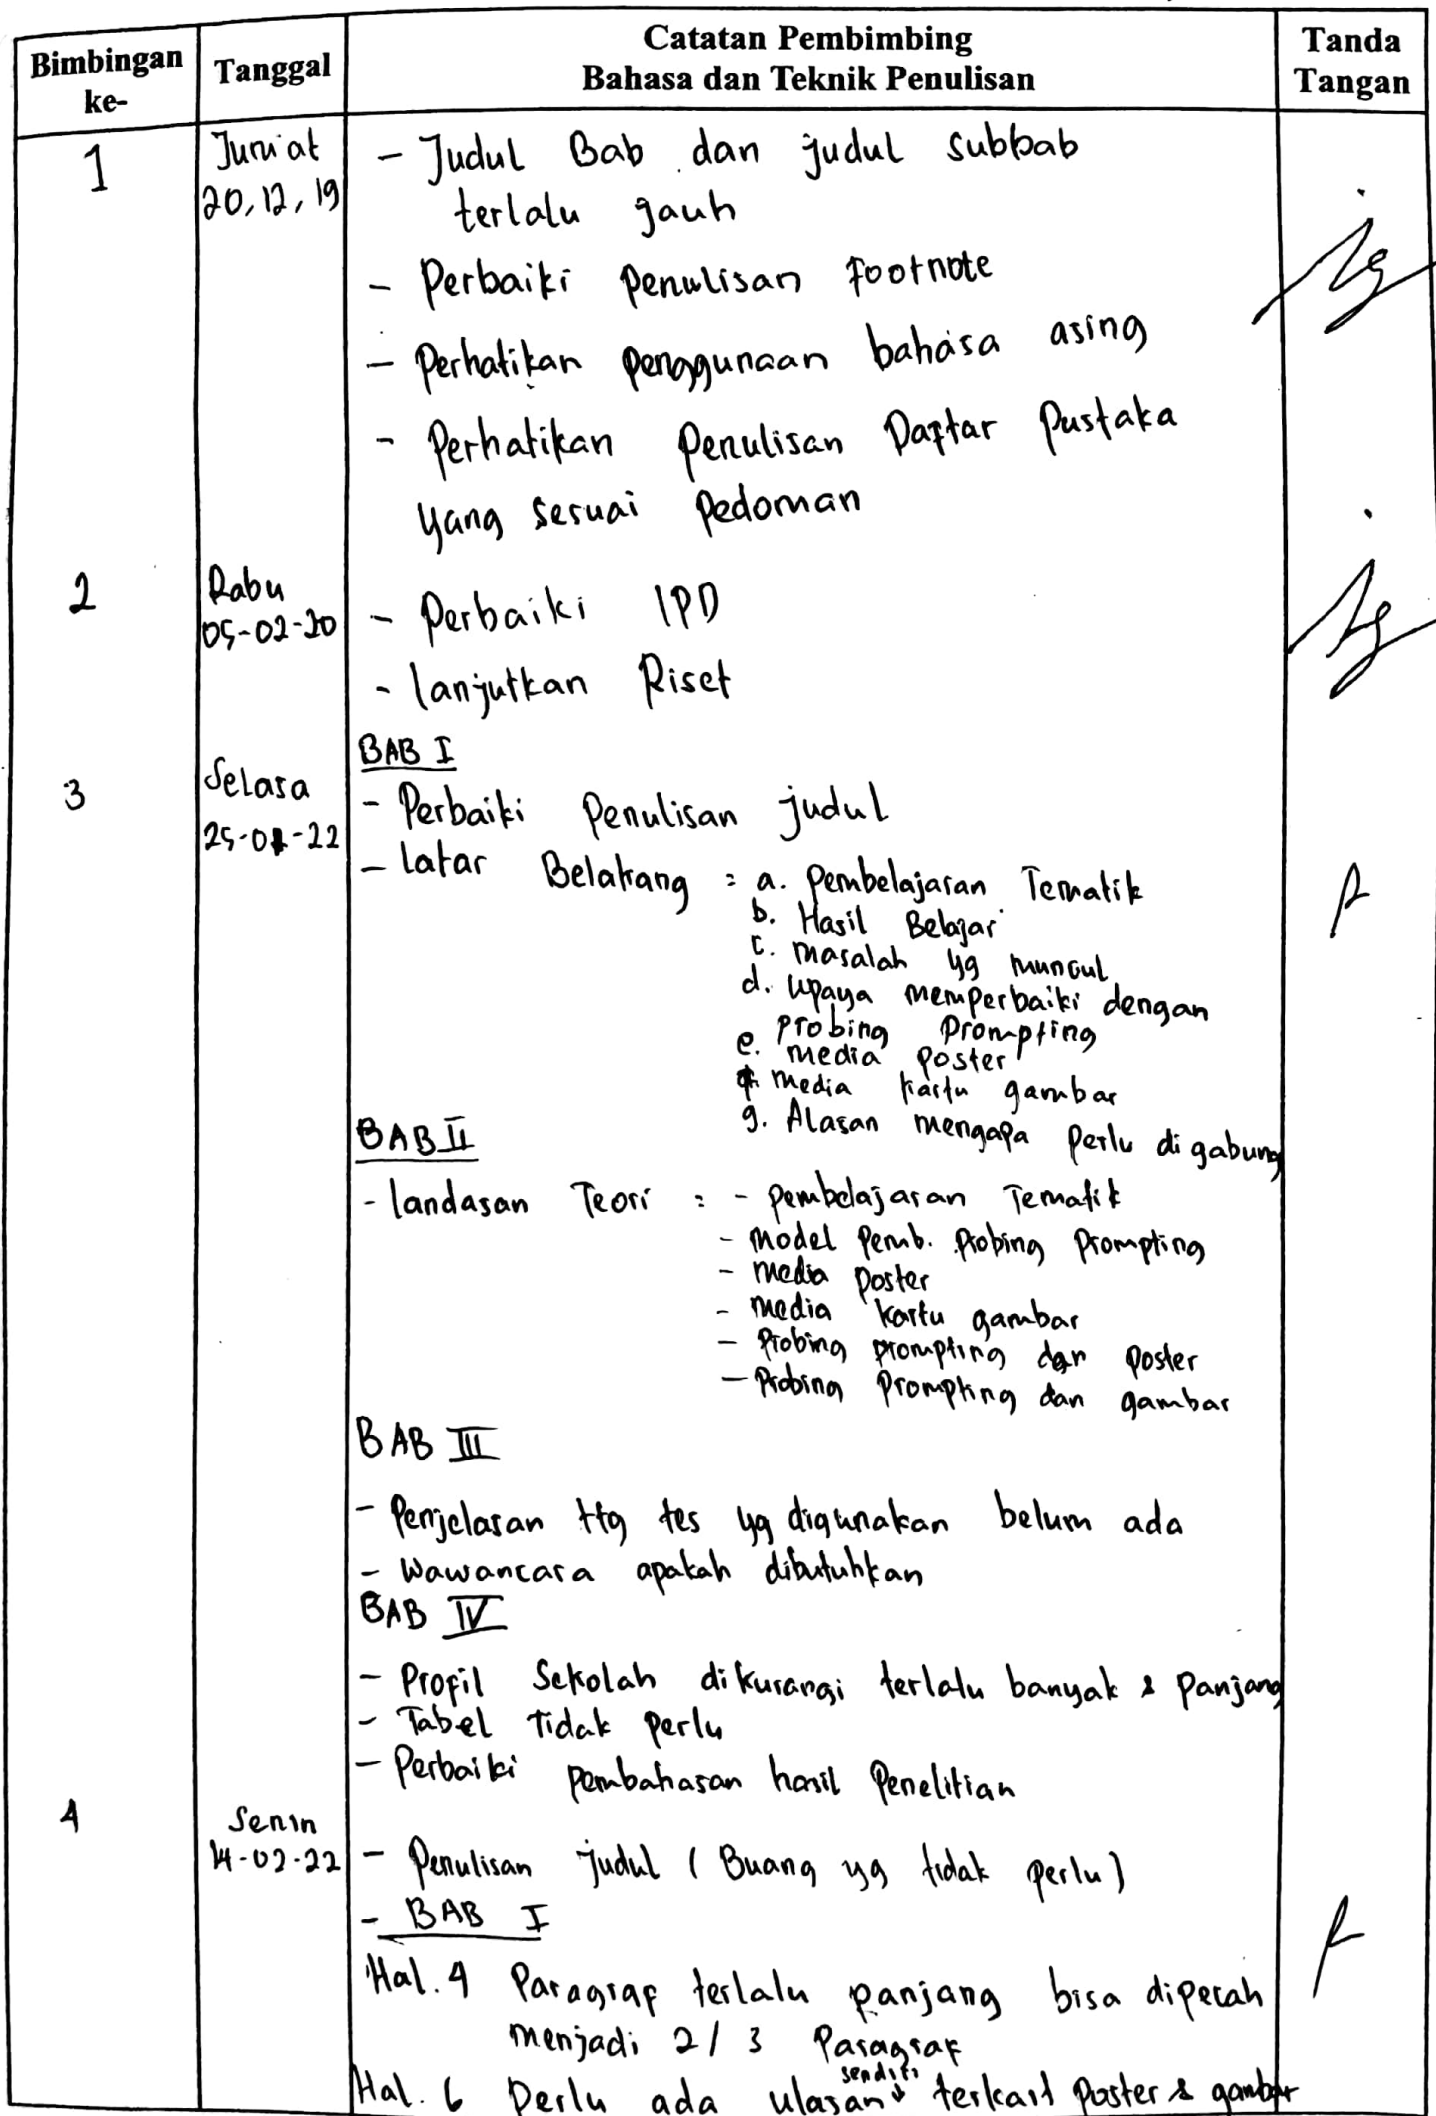 Bimbingan ke-
Tanggal
Catatan Pembimbing
Bahasa dan Teknik Penulisan
Tanda Tangan
1
Jum'at
20, 12, 19
- Judul Bab dan judul subbab
terlalu jauh
- Perbaiki Penulisan Footnote
- Perhatikan penggunaan bahasa asing
- Perhatikan Penulisan Daftar Pustaka
yang sesuai Pedoman
2
Rabu
05-02-20
- Perbaiki IPD
- lanjutkan Riset
3
Selasa
25-01-22
BAB I
- Perbaiki Penulisan judul
- latar Belakang : a. Pembelajaran Tematik
b. Hasil Belajar
c. masalah yg muncul
d. upaya memperbaiki dengan
Probing Prompting
e. media Poster
f. media kartu gambar
g. Alasan mengapa perlu di gabung
BAB II
- landasan Teori : - pembelajaran Tematik
- model Pemb. Probing Prompting
- media poster
- media kartu gambar
- Probing prompting dan poster
- Probing Prompting dan gambar
BAB III
- Penjelasan ttg tes yg digunakan belum ada
- Wawancara apakah dibutuhkan
BAB IV
- Profil Sekolah dikurangi terlalu banyak & Panjang
- Tabel Tidak Perlu
- Perbaiki pembahasan hasil Penelitian
4
Senin
14-02-22
- Penulisan judul ( Buang yg tidak perlu )
- BAB I
Hal. 4 Paragraf terlalu panjang bisa dipecah
menjadi 2 / 3 Paragraf
Hal. 6 Perlu ada ulasan sendiri terkait Poster & gambar